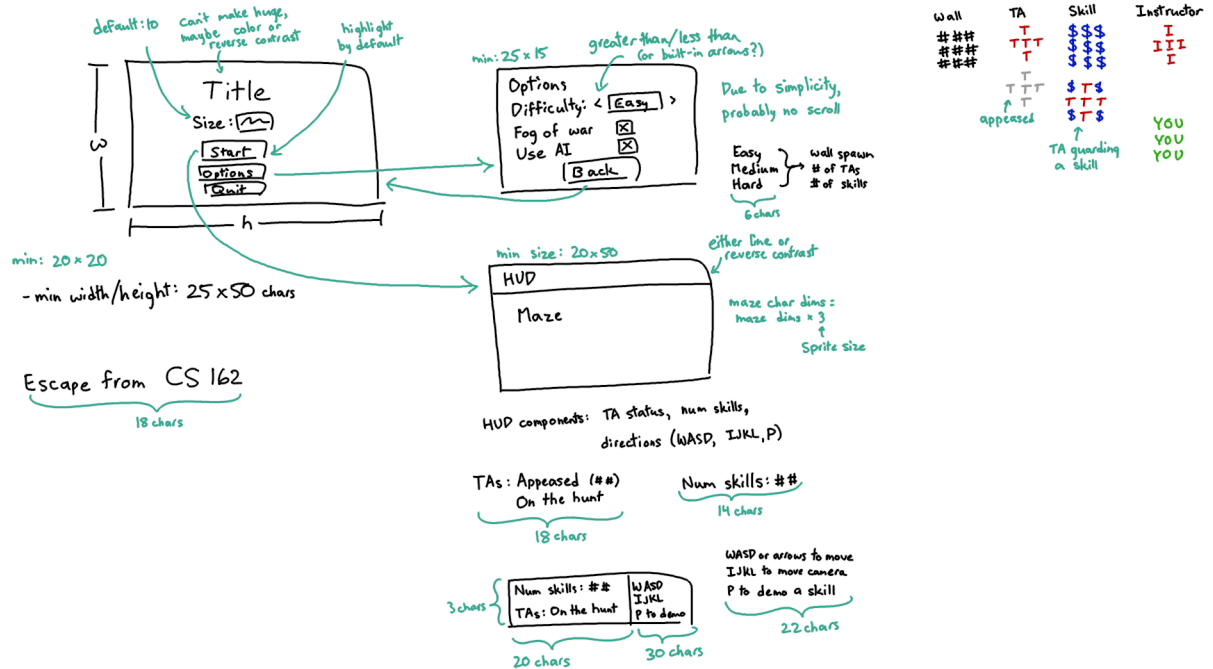 default: 10
can't make huge,
maybe color or
reverse contrast
highlight
by default
Title
Size:
Start
Options
Quit
w
h
min: 20 x 20
- min width/height: 25 x 50 chars
Escape from CS 162
18 chars
min: 25 x 15
greater than/less than
(or built-in arrows?)
Options
Difficulty: < Easy >
Fog of war X
Use AI X
Back
Due to simplicity,
probably no scroll
Easy
Medium
Hard
6 chars
wall spawn
# of TAs
# of skills
min size: 20 x 50
either line or
reverse contrast
HUD
Maze
maze char dims =
maze dims * 3
Sprite size
HUD components: TA status, num skills,
directions (WASD, IJKL, P)
TAs: Appeased (##)
On the hunt
18 chars
Num skills: ##
14 chars
3 chars
Num skills: ##
TAs: On the hunt
WASD
IJKL
P to demo
20 chars
30 chars
WASD or arrows to move
IJKL to move camera
P to demo a skill
22 chars
Wall
###
###
###
TA
T
TTT
T
T
T T T
T
appeased
Skill
$$$
$$$
$$$
$T$
TTT
$T$
TA guarding
a skill
Instructor
I
III
I
YOU
YOU
YOU